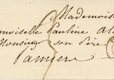 Mademois
moiselle Pauline Al
Monsieur son Père
Pamiers